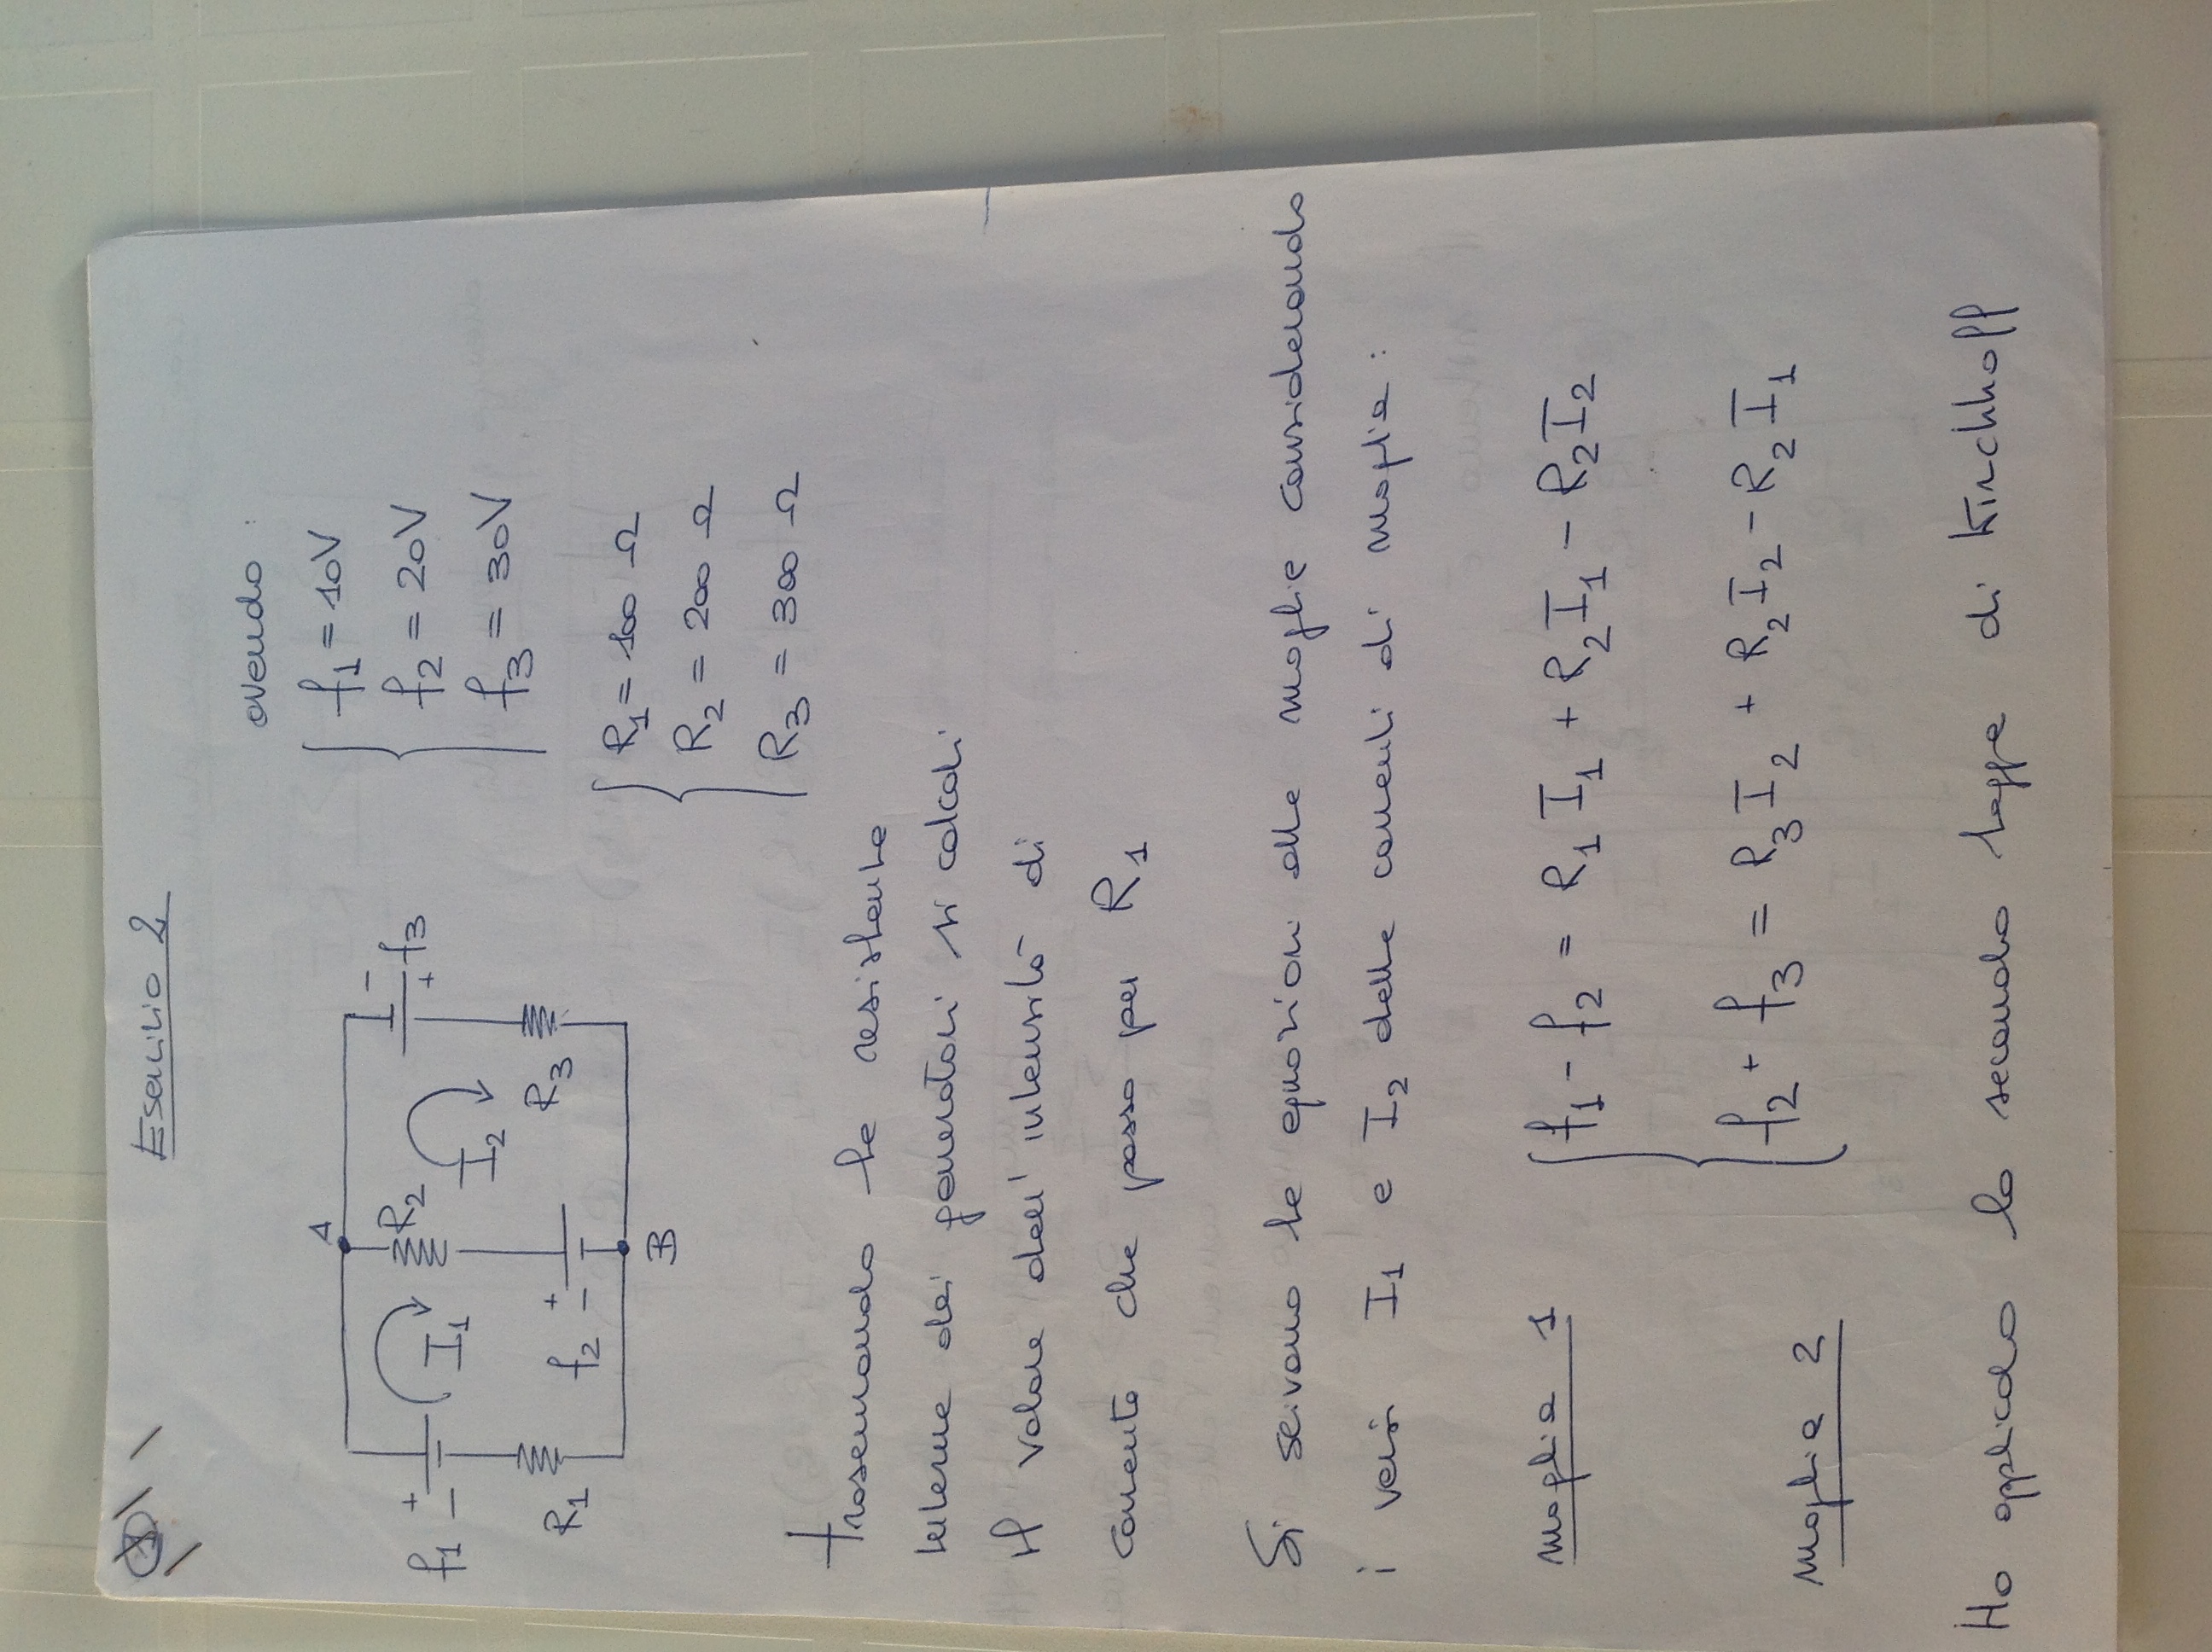 Esercizio 2
avendo :
f1 = 10V
f2 = 20V
f3 = 30V
A
R2
f1
+
-
I1
I2
-
+
f3
R1
f2
+
-
R3
B
R1 = 100 Ω
R2 = 200 Ω
R3 = 300 Ω
trascurando le resistenze
interne dei generatori si calcoli
il valore dell' intensità di
corrente che passa per R1
Si scrivono le equazioni alle maglie considerando
i versi I1 e I2 delle correnti di maglia :
maglia 1
f1 - f2 = R1 I1 + R2 I1 - R2 I2
f2 + f3 = R3 I2 + R2 I2 - R2 I1
maglia 2
Ho applicato la seconda legge di Kirchhoff